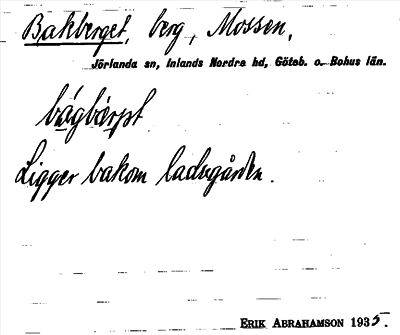 Bakberget, berg, Mossen,
Jörlanda sn, Inlands Nordre hd, Göteb. o. Bohus län.
bágbærpt
Ligger bakom ladugården.
ERIK ABRAHAMSON 1935.